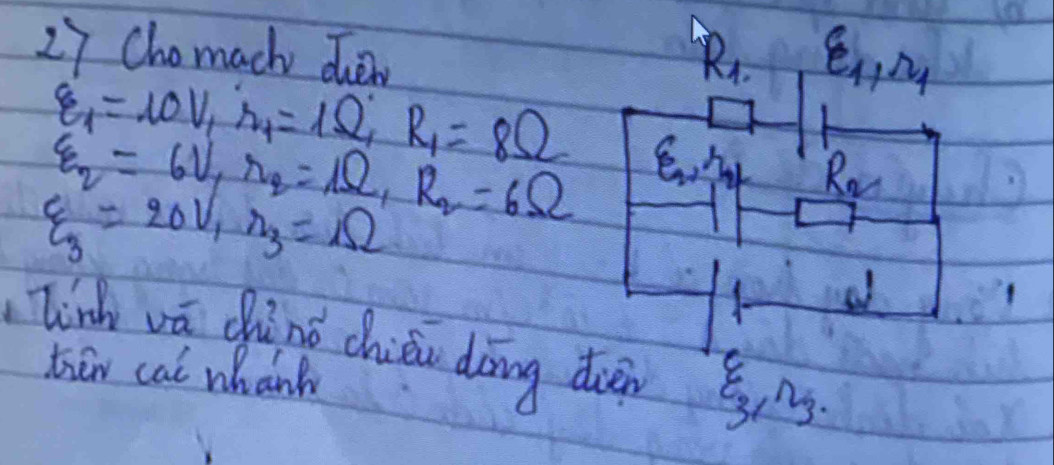 27 Cho mạch điện
ℰ₁ = 10V, r₁ = 1Ω, R₁ = 8Ω
ℰ₂ = 6V, r₂ = 1Ω, R₂ = 6Ω
ℰ₃ = 20V, r₃ = 1Ω
Tính và chỉ rõ chiều dòng điện
trên các nhánh
R₁. ℰ₁, r₁
ℰ₂, r₂ R₂
ℰ₃, r₃.